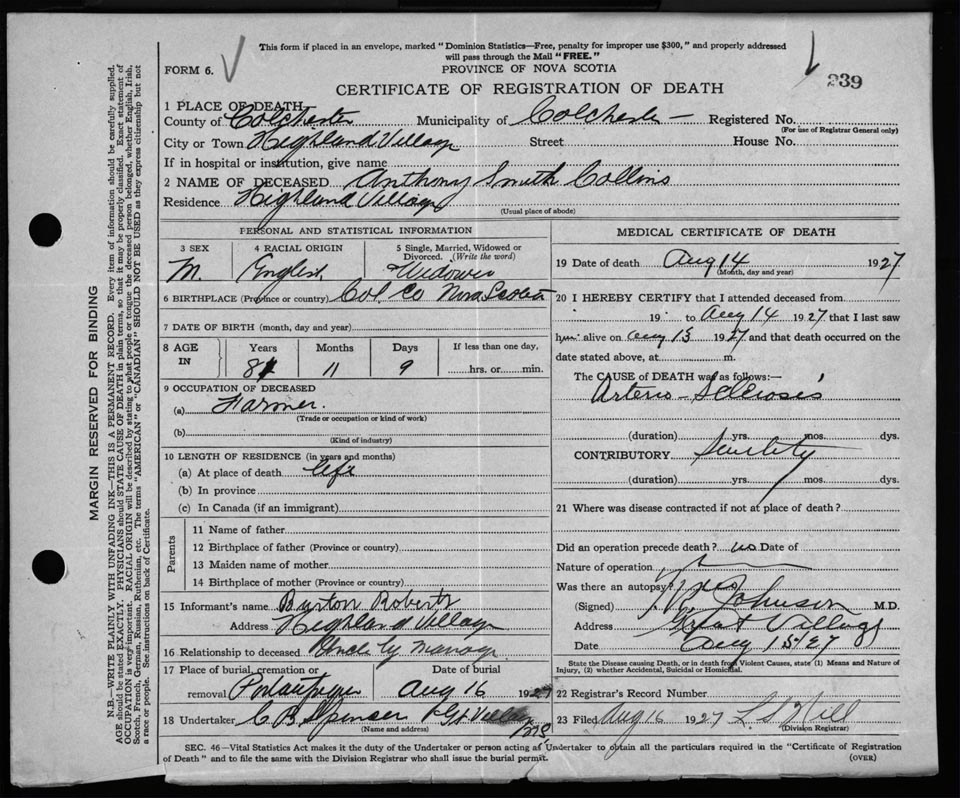 This form if placed in an envelope, marked "Dominion Statistics—Free, penalty for improper use $300," and properly addressed
will pass through the Mail "FREE."
FORM 6.
PROVINCE OF NOVA SCOTIA
239
CERTIFICATE OF REGISTRATION OF DEATH
1 PLACE OF DEATH
County of Colchester Municipality of Colchester — Registered No.
(For use of Registrar General only)
City or Town Highland Village Street House No.
If in hospital or institution, give name
2 NAME OF DECEASED Anthony Smith Collins
Residence Highland Village
(Usual place of abode)
PERSONAL AND STATISTICAL INFORMATION
3 SEX 4 RACIAL ORIGIN 5 Single, Married, Widowed or Divorced. (Write the word)
M. English Widower
6 BIRTHPLACE (Province or country) Col. Co Nova Scotia
7 DATE OF BIRTH (month, day and year)
8 AGE IN Years Months Days If less than one day,
11 9 hrs. or min.
9 OCCUPATION OF DECEASED
(a) Farmer.
(Trade or occupation or kind of work)
(b)
(Kind of industry)
10 LENGTH OF RESIDENCE (in years and months)
(a) At place of death life
(b) In province
(c) In Canada (if an immigrant)
Parents
11 Name of father
12 Birthplace of father (Province or country)
13 Maiden name of mother
14 Birthplace of mother (Province or country)
15 Informant's name Burton Roberts
Address Highland Village
16 Relationship to deceased Uncle by marriage
17 Place of burial, cremation or Date of burial
removal Portaupique Aug 16 1927
18 Undertaker C B Spencer Gt. Village
(Name and address) N.S.
MEDICAL CERTIFICATE OF DEATH
19 Date of death Aug 14 1927
(Month, day and year)
20 I HEREBY CERTIFY that I attended deceased from
19 to Aug 14 1927 that I last saw
him alive on Aug 13 1927 and that death occurred on the
date stated above, at m.
The CAUSE of DEATH was as follows:—
Arterio-Sclerosis
(duration) yrs. mos. dys.
CONTRIBUTORY Senility
(duration) yrs. mos. dys.
21 Where was disease contracted if not at place of death?
Did an operation precede death? no Date of
Nature of operation
Was there an autopsy? no
(Signed) Johnson M.D.
Address Great Village
Date Aug 15/27
State the Disease causing Death, or in death from Violent Causes, state (1) Means and Nature of
Injury, (2) whether Accidental, Suicidal or Homicidal.
22 Registrar's Record Number
23 Filed Aug 16 1927 L S Hill
(Division Registrar)
SEC. 46—Vital Statistics Act makes it the duty of the Undertaker or person acting as Undertaker to obtain all the particulars required in the "Certificate of Registration
of Death" and to file the same with the Division Registrar who shall issue the burial permit.
(OVER)
MARGIN RESERVED FOR BINDING
N.B.—WRITE PLAINLY WITH UNFADING INK—THIS IS A PERMANENT RECORD. Every item of information should be carefully supplied.
AGE should be stated EXACTLY. PHYSICIANS should STATE CAUSE OF DEATH in plain terms, so that it may be properly classified. Exact statement of
OCCUPATION is very important. RACIAL ORIGIN will be described by stating to what people or tongue the deceased person belonged, whether English, Irish,
Scotch, French, German, Russian, Ruthenian, etc. The terms "AMERICAN" or "CANADIAN" SHOULD NOT BE USED as they express citizenship but not
a race or people. See instructions on back of Certificate.